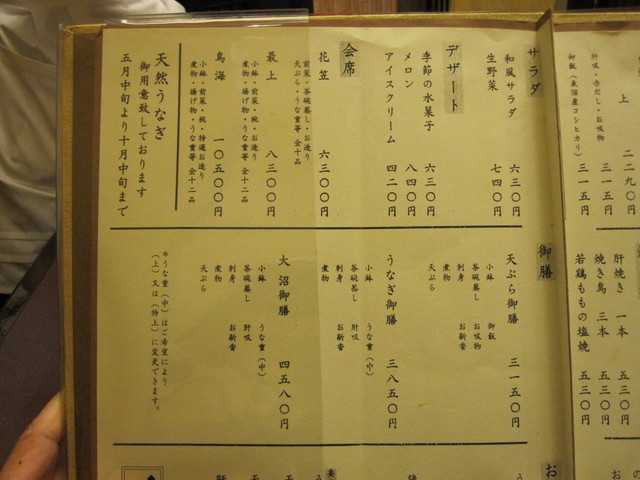 上 二二九〇円
肝吸・赤だし・お吸物 三一五円
御飯（魚沼産コシヒカリ） 三一五円
サラダ
和風サラダ 六三〇円
生野菜 七四〇円
デザート
季節の水菓子 六三〇円
メロン 八四〇円
アイスクリーム 四二〇円
会席
花笠 六三〇〇円
前菜・茶碗蒸し・お造り
天ぷら・うな重等 全十品
最上 八三〇〇円
小鉢・前菜・椀・お造り
煮物・揚げ物・うな重等 全十二品
鳥海 一〇五〇〇円
小鉢・前菜・椀・特選お造り
煮物・揚げ物・うな重等 全十二品
天然うなぎ
御用意致しております
五月中旬より十月中旬まで
肝焼き 一本 五三〇円
焼き鳥 三本 五三〇円
若鶏ももの塩焼 五三〇円
御膳
天ぷら御膳 三一五〇円
小鉢 御飯
茶碗蒸し お吸物
刺身 お新香
煮物
天ぷら
うなぎ御膳 三八五〇円
小鉢 うな重（中）
茶碗蒸し 肝吸
刺身 お新香
煮物
大沼御膳 四五八〇円
小鉢 うな重（中）
茶碗蒸し 肝吸
刺身 お新香
煮物
天ぷら
＊うな重（中）はご希望により
（上）又は（特上）に変更できます。
お